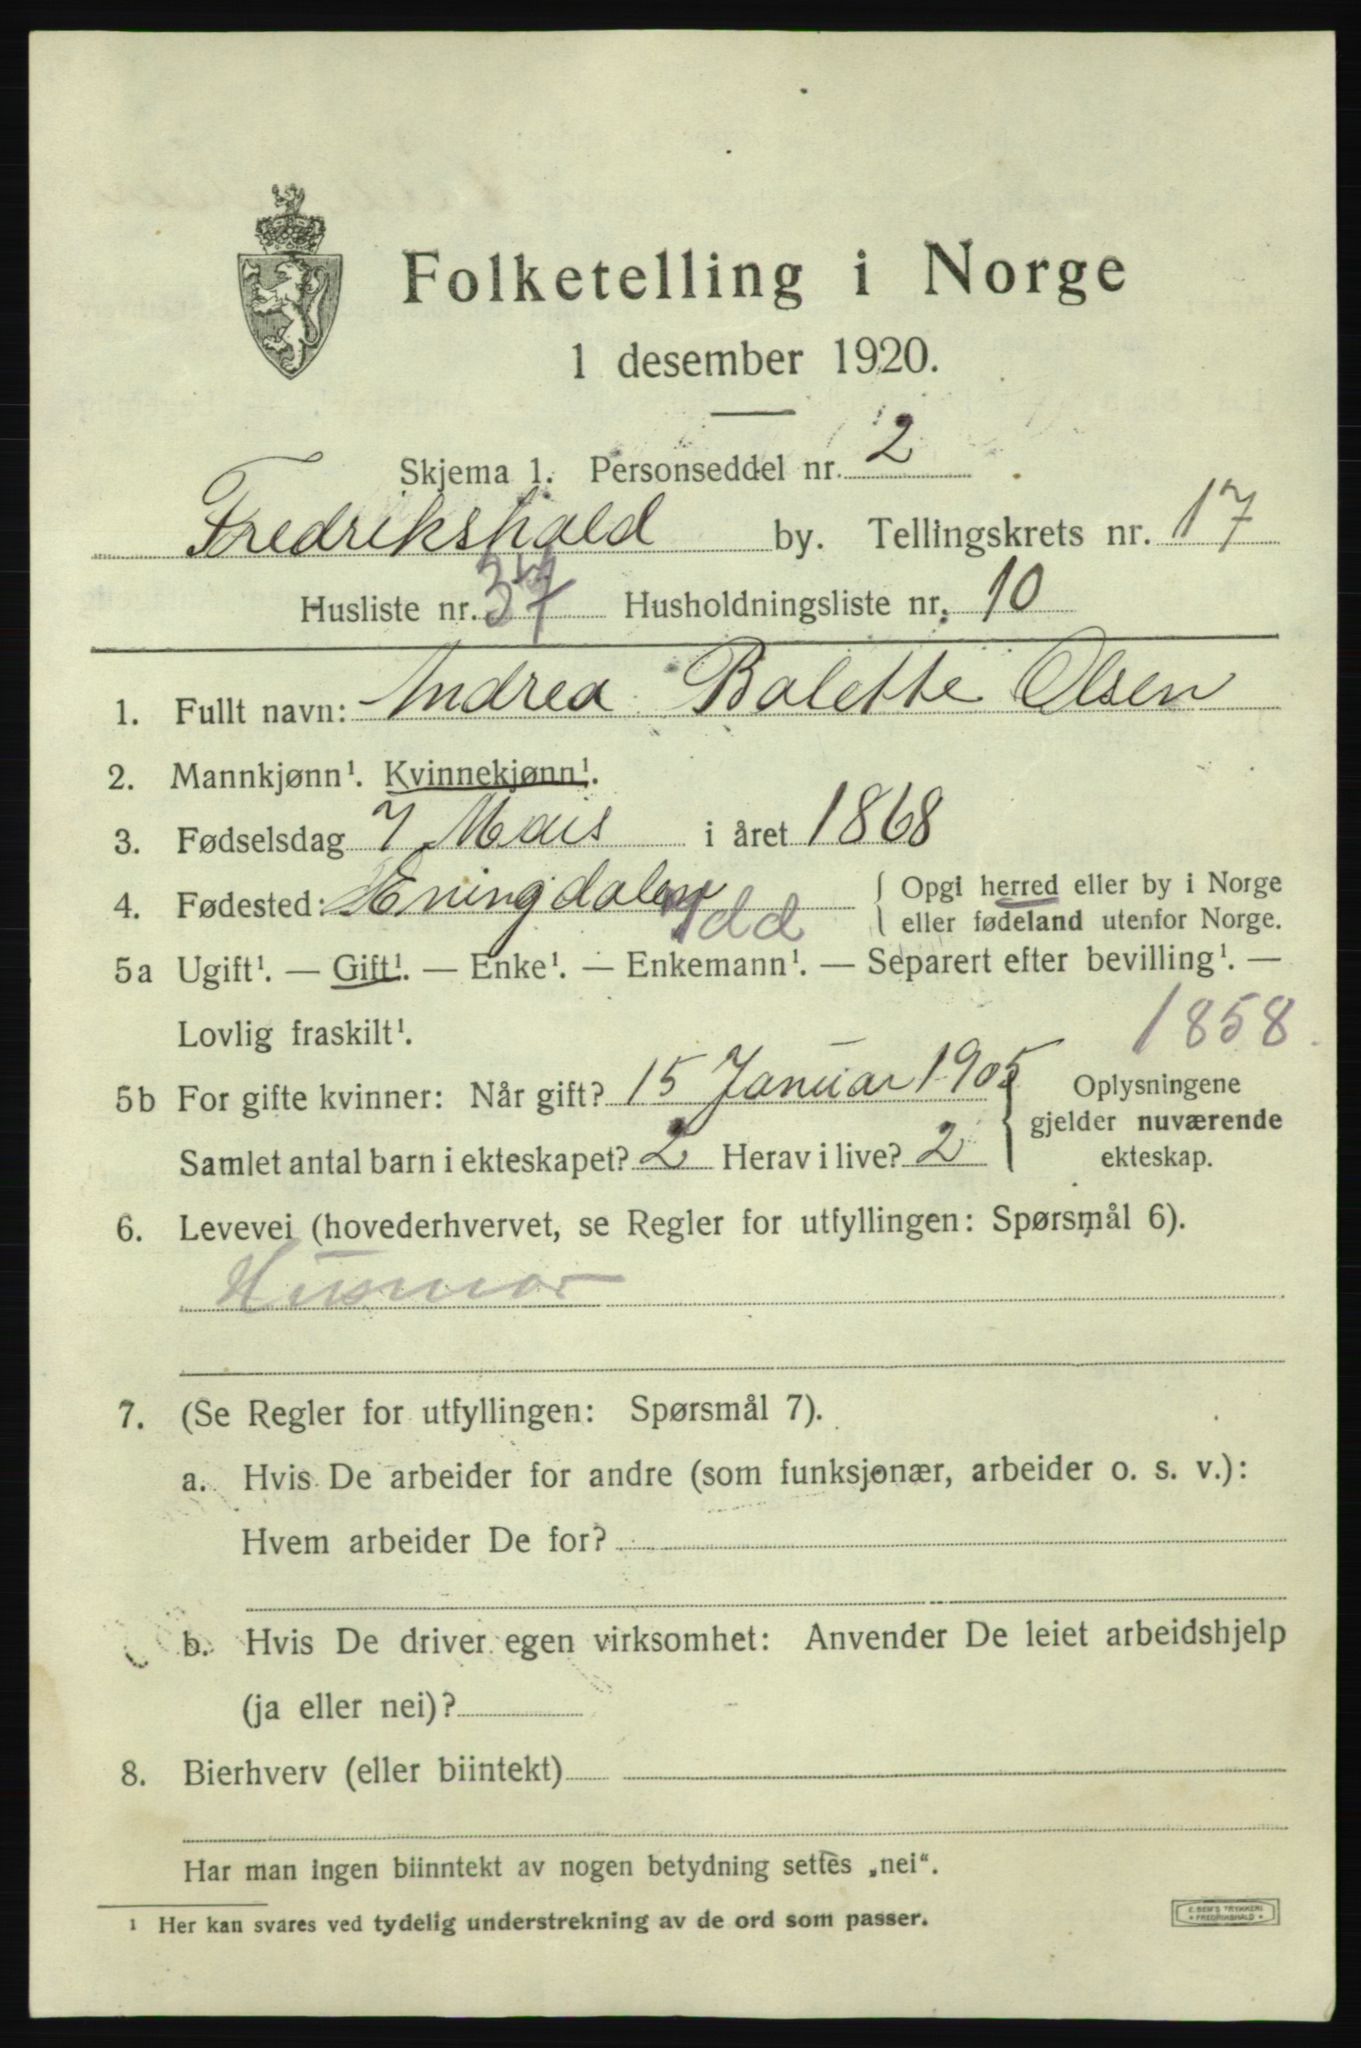 Folketelling i Norge
1 desember 1920.
Skjema 1. Personseddel nr. 2
Fredrikshald by. Tellingskrets nr. 17
Husliste nr. 37 Husholdningsliste nr. 10
1. Fullt navn: Andrea Bolette Olsen
2. Mannkjønn¹. Kvinnekjønn¹.
3. Fødselsdag 7 Mais i året 1868
4. Fødested: Enningdalen Idd { Opgi herred eller by i Norge
eller fødeland utenfor Norge.
5a Ugift¹. — Gift¹. — Enke¹. — Enkemann¹. — Separert efter bevilling¹. —
Lovlig fraskilt¹. 1858
5b For gifte kvinner: Når gift? 15 Januar 1905 { Oplysningene
gjelder nuværende
Samlet antal barn i ekteskapet? 2 Herav i live? 2 ekteskap.
6. Levevei (hovederhvervet, se Regler for utfyllingen: Spørsmål 6).
Husmor
7. (Se Regler for utfyllingen: Spørsmål 7).
a. Hvis De arbeider for andre (som funksjonær, arbeider o. s. v.):
Hvem arbeider De for?
b. Hvis De driver egen virksomhet: Anvender De leiet arbeidshjelp
(ja eller nei)?
8. Bierhverv (eller biintekt)
Har man ingen biinntekt av nogen betydning settes „nei“.
¹ Her kan svares ved tydelig understrekning av de ord som passer.
E. SEM'S TRYKKERI
FREDRIKSHALD